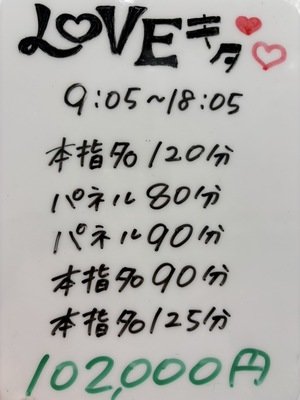 LOVEキタ
9:05~18:05
本指名120分
パネル80分
パネル90分
本指名90分
本指名125分
102,000円